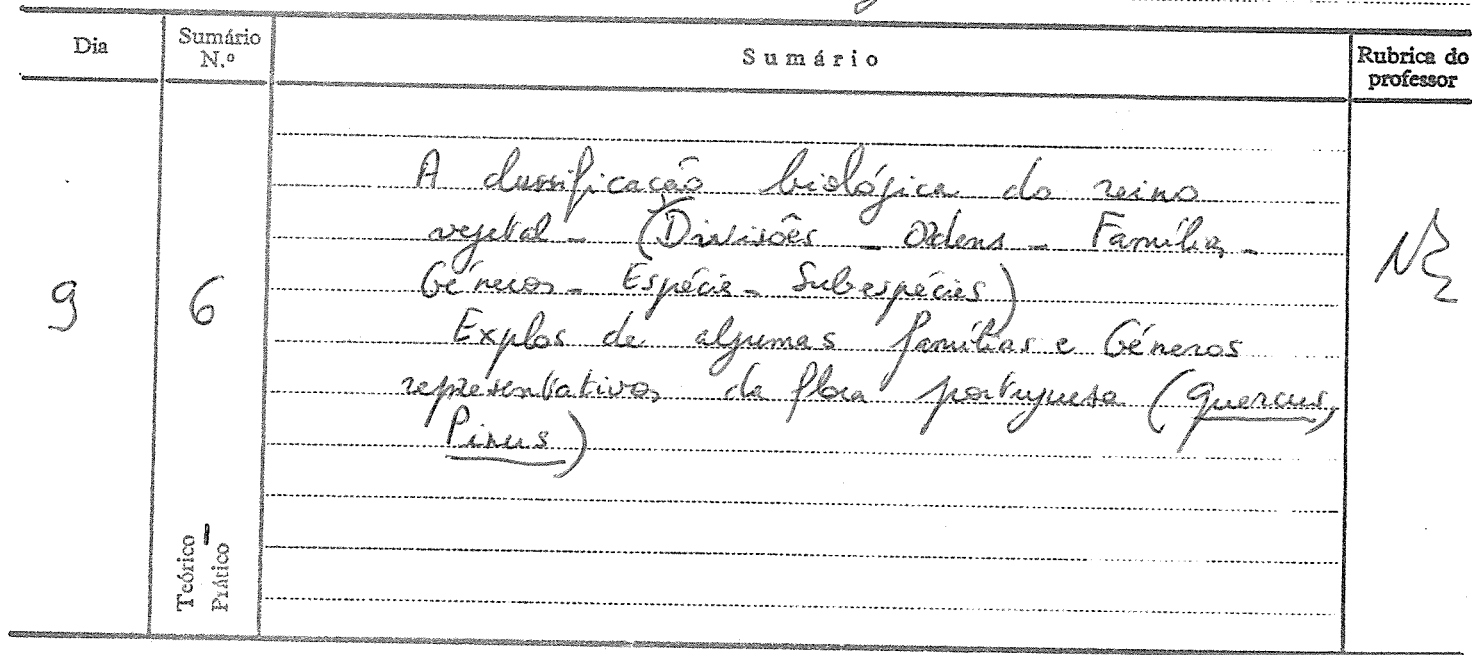 Dia Sumário N.º Sumário Rubrica do professor
A classificação biológica do reino
vegetal - (Divisões - Ordens - Família -
Géneros - Espécie - Subespécies)
9 6
Explos de algumas famílias e Géneros
representativos da flora portuguesa (Quercus,
Pinus)
Teórico - Prático